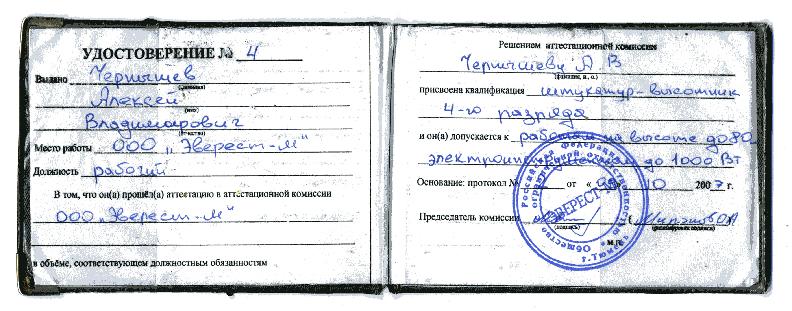 УДОСТОВЕРЕНИЕ № 4
Выдано Чернышев
(фамилия)
Алексей
(имя)
Владимирович
(отчество)
Место работы ООО „Эверест-М"
Должность рабочий
В том, что он(а) прошёл(а) аттестацию в аттестационной комиссии
ООО „Эверест-М"
в объёме, соответствующем должностным обязанностям
Решением аттестационной комиссии
Чернышеву А. В
(фамилия, и., о.)
присвоена квалификация штукатур-высотник
4-го разряда
и он(а) допускается к работам на высоте до 80
до 1000 Вт
Основание: протокол № от « 10 2007 г.
Председатель комиссии
(подпись) (расшифровка подписи)
М.П.
Российская Федерация
ЭВЕРЕСТ-М
Общество с ограниченной ответственностью
г. Тюмень